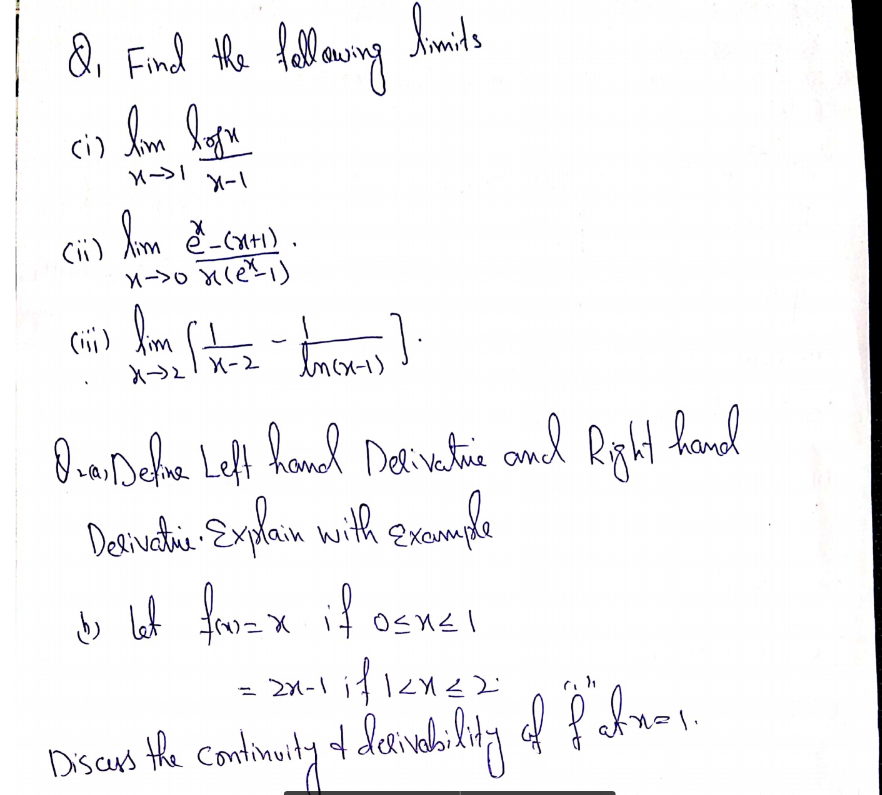 Q1 Find the following limits
(i) lim x→1 logx / x-1
(ii) lim x→0 e^x-(x+1) / x(e^x-1) .
(iii) lim x→2 [ 1 / x-2 - 1 / ln(x-1) ] .
Q2(a) Define Left hand Derivative and Right hand
Derivative. Explain with Example
b) Let f(x)=x if 0≤x≤1
= 2x-1 if 1<x≤2
Discuss the continuity & derivability of "f" at x=1.